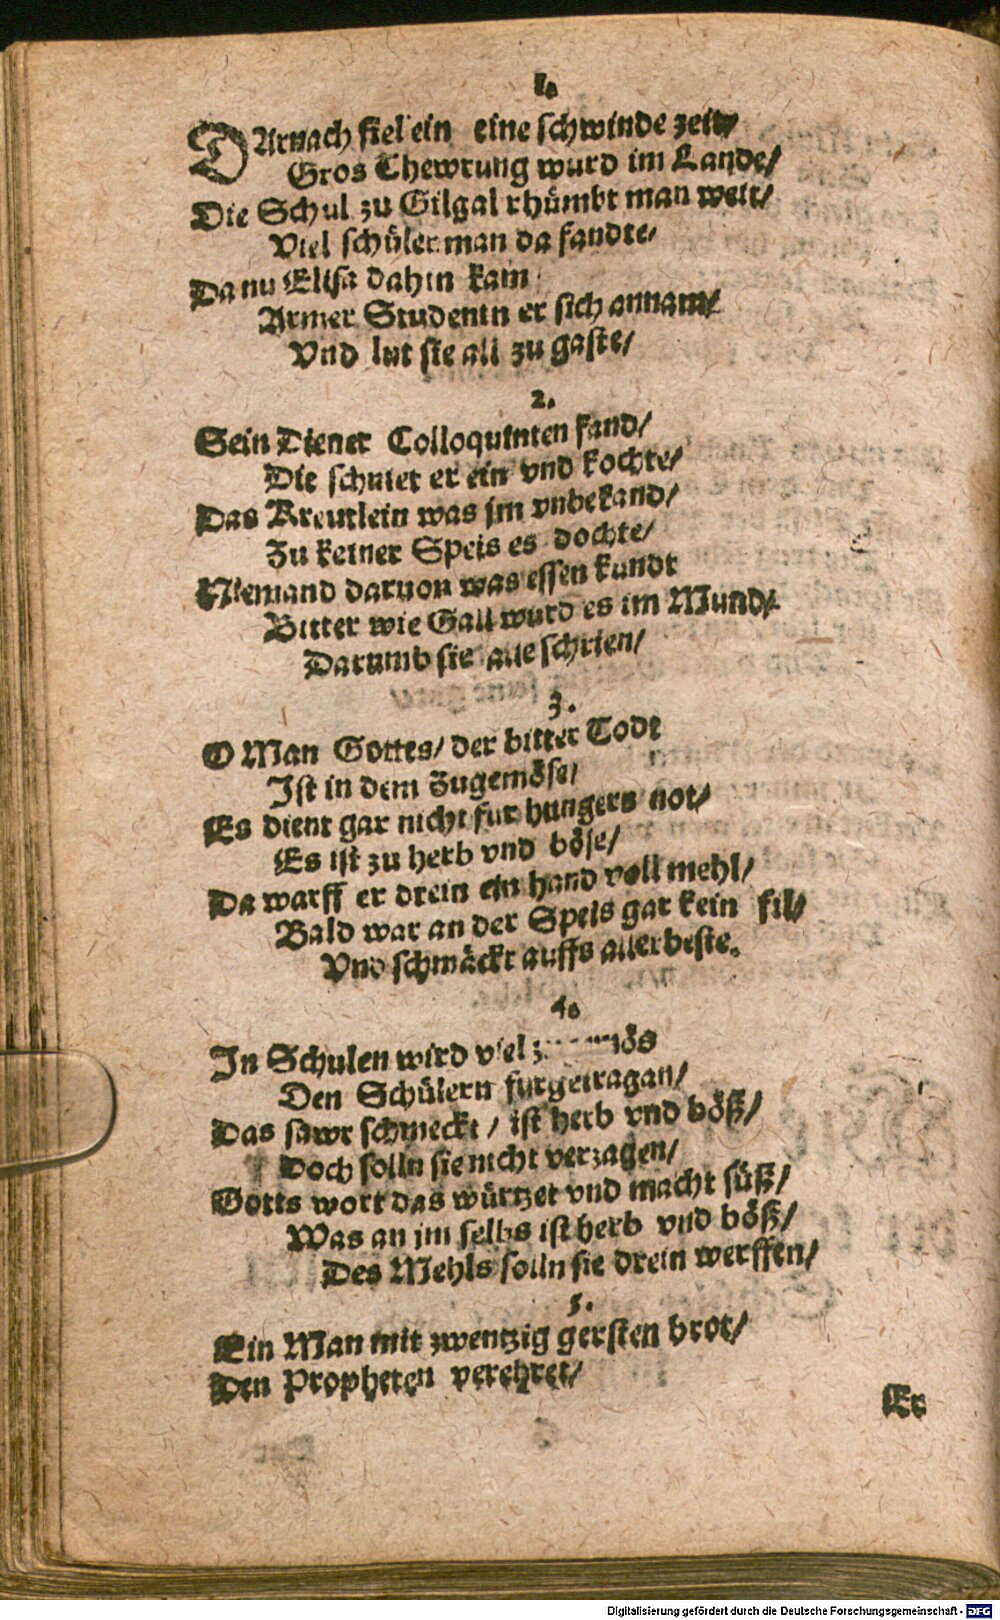 1.
DArnach fiel ein eine schwinde zeit/
Gros Thewrung wurd im Lande/
Die Schul zu Gilgal rhümbt man weit/
Viel schüler man da fandte/
Da nu Elisa dahin kam
Armer Studentn er sich annam/
Vnd lut sie all zu gaste/
2.
Sein Diener Colloquinten fand/
Die schniet er ein vnd kochte/
Das Kreutlein was jm vnbekand/
Zu keiner Speis es dochte/
Niemand daruon was essen kundt
Bitter wie Gall wurd es im Mund/
Darumb sie alle schrien/
3.
O Man Gottes/ der bitter Todt
Ist in dem Zugemöse/
Es dient gar nicht fur hungers not/
Es ist zu herb vnd böse/
Da warff er drein ein hand voll mehl/
Bald war an der Speis gar kein fil/
Vnd schmäckt auffs allerbeste.
4.
In Schulen wird viel
Den Schülern furgetragan/
Das sawr schmeckt/ ist herb vnd böß/
Doch solln sie nicht verzagen/
Gotts wort das würtzet vnd macht süß/
Was an jm selbs ist herb vnd böß/
Des Mehls solln sie drein werffen/
5.
Ein Man mit zwentzig gersten brot/
Den Propheten verehret/
Er
Digitalisierung gefördert durch die Deutsche Forschungsgemeinschaft - DFG